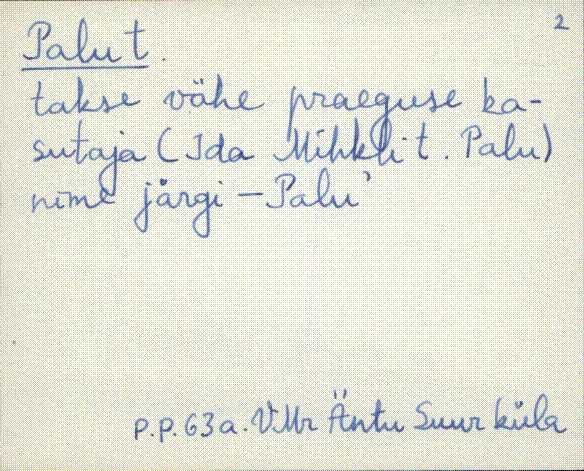 2
Palu t.
takse vähe praeguse ka-
sutaja (Ida Mihkli t. Palu)
nime järgi – Palu'
P.P. 63 a. VMr Äntu Suurküla